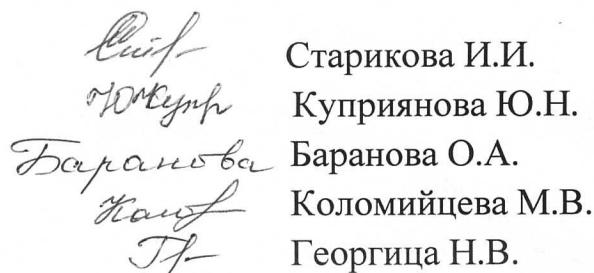 Старикова И.И.
Куприянова Ю.Н.
Баранова Баранова О.А.
Коломийцева М.В.
Георгица Н.В.